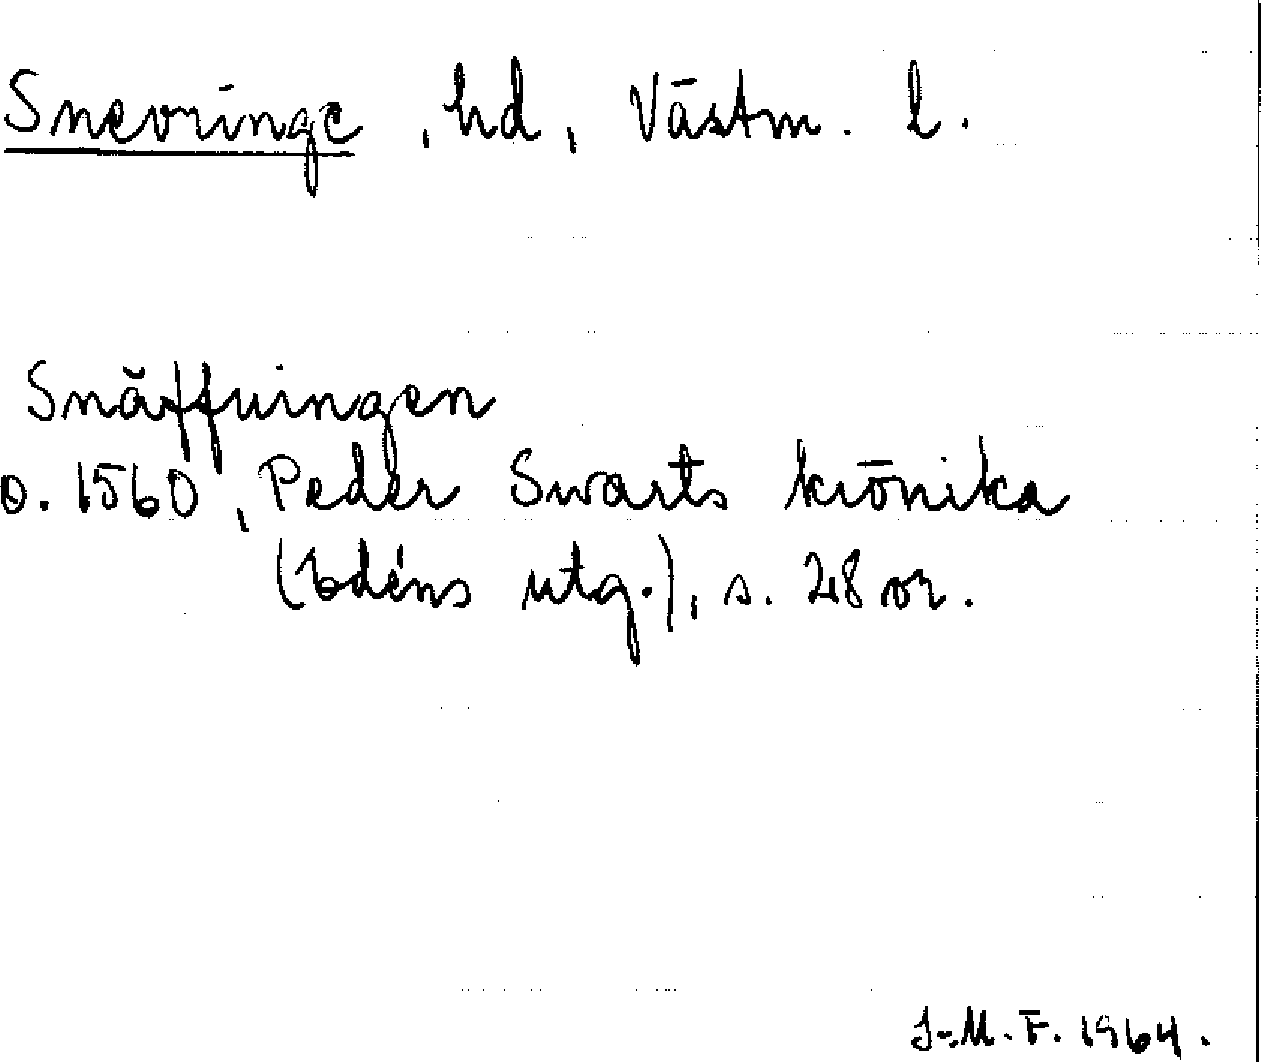 Snevringe, hd, Västm. l.
Snäffuingen
o. 1560, Peder Swarts krönika
(Edéns utg.), s. 28 or.
I-M. F. 1964.